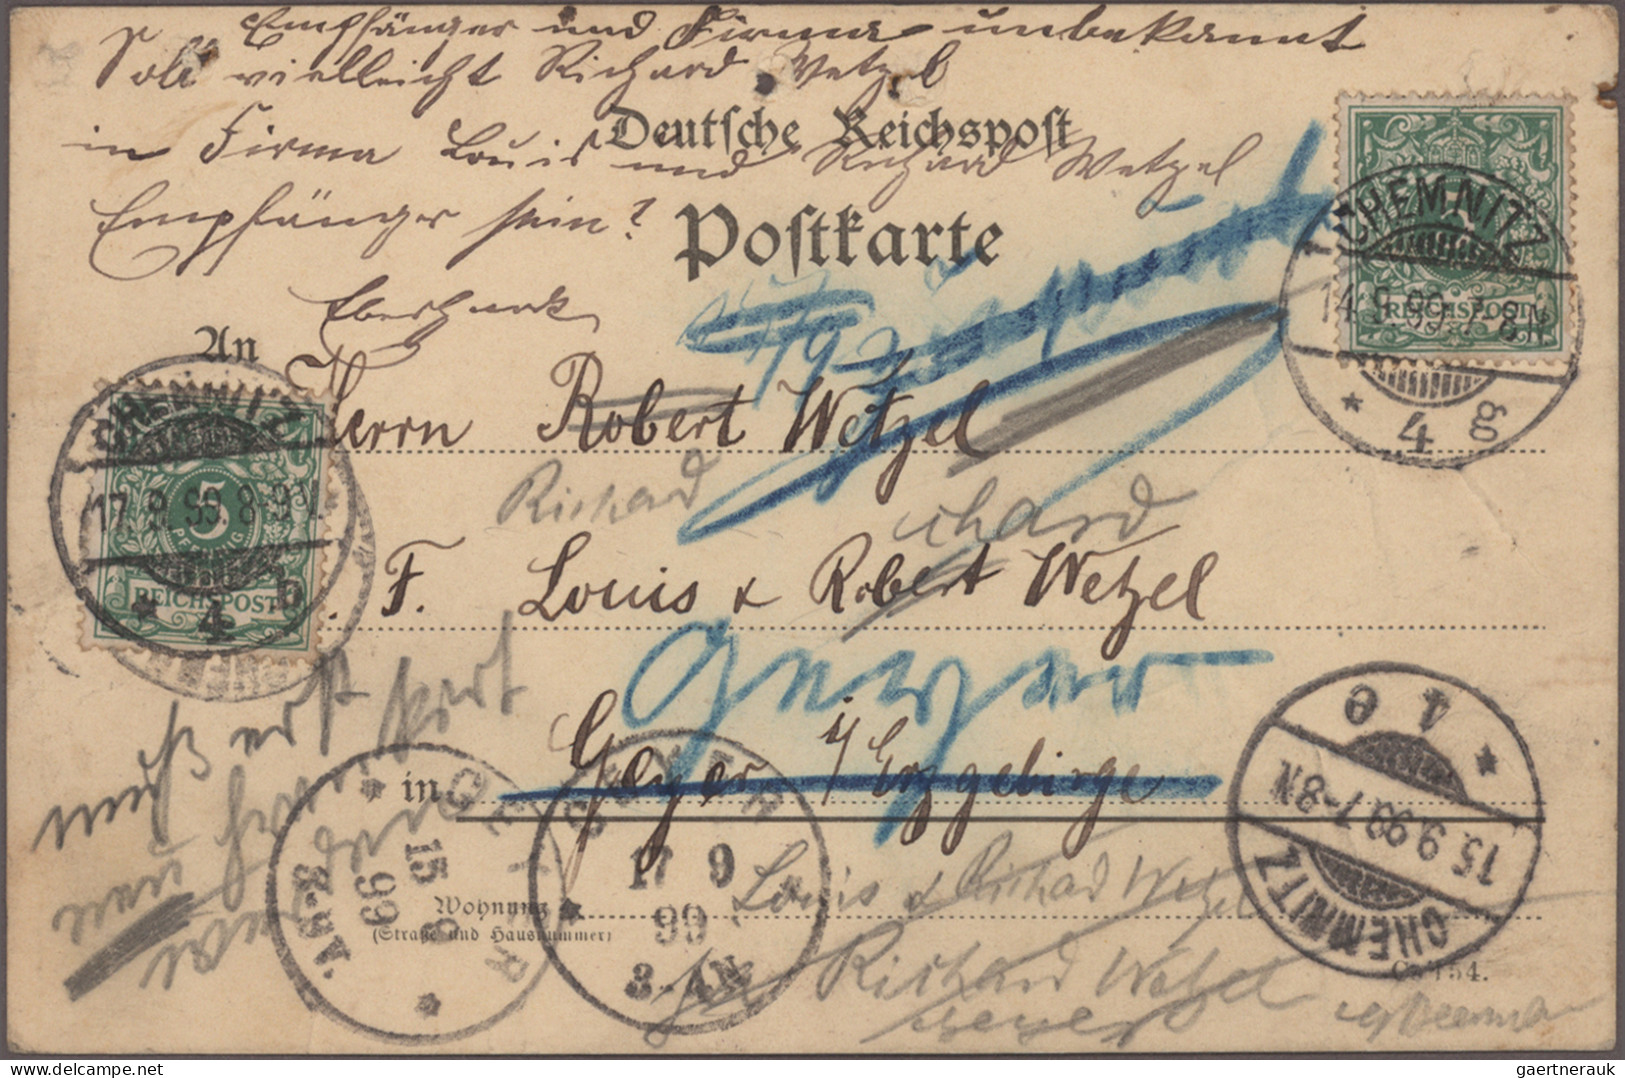 Empfänger und Firma unbekannt
Soll vielleicht Richard Wetzel
in Firma Louis und Richard Wetzel
Empfänger sein?
Deutsche Reichspost
Postkarte
An
Herrn Robert Wetzel
Richard
chard
F. Louis & Robert Wetzel
Geyer
in Geyer i/Erzgebirge
Louis & Richard Wetzel
Wohnung
(Straße und Hausnummer)
Richard Wetzel
Geyer
muß erst
CHEMNITZ
14.9.99.7-8N
* 4 g
REICHSPOST
CHEMNITZ
17.9.99.8-9V.
* 4 b
5
PFENNIG
REICHSPOST
CHEMNITZ
15.9.99.7-8N
* 4 e
GEYER
15 9
99
GEYER
17 9
99
gaertnerauk